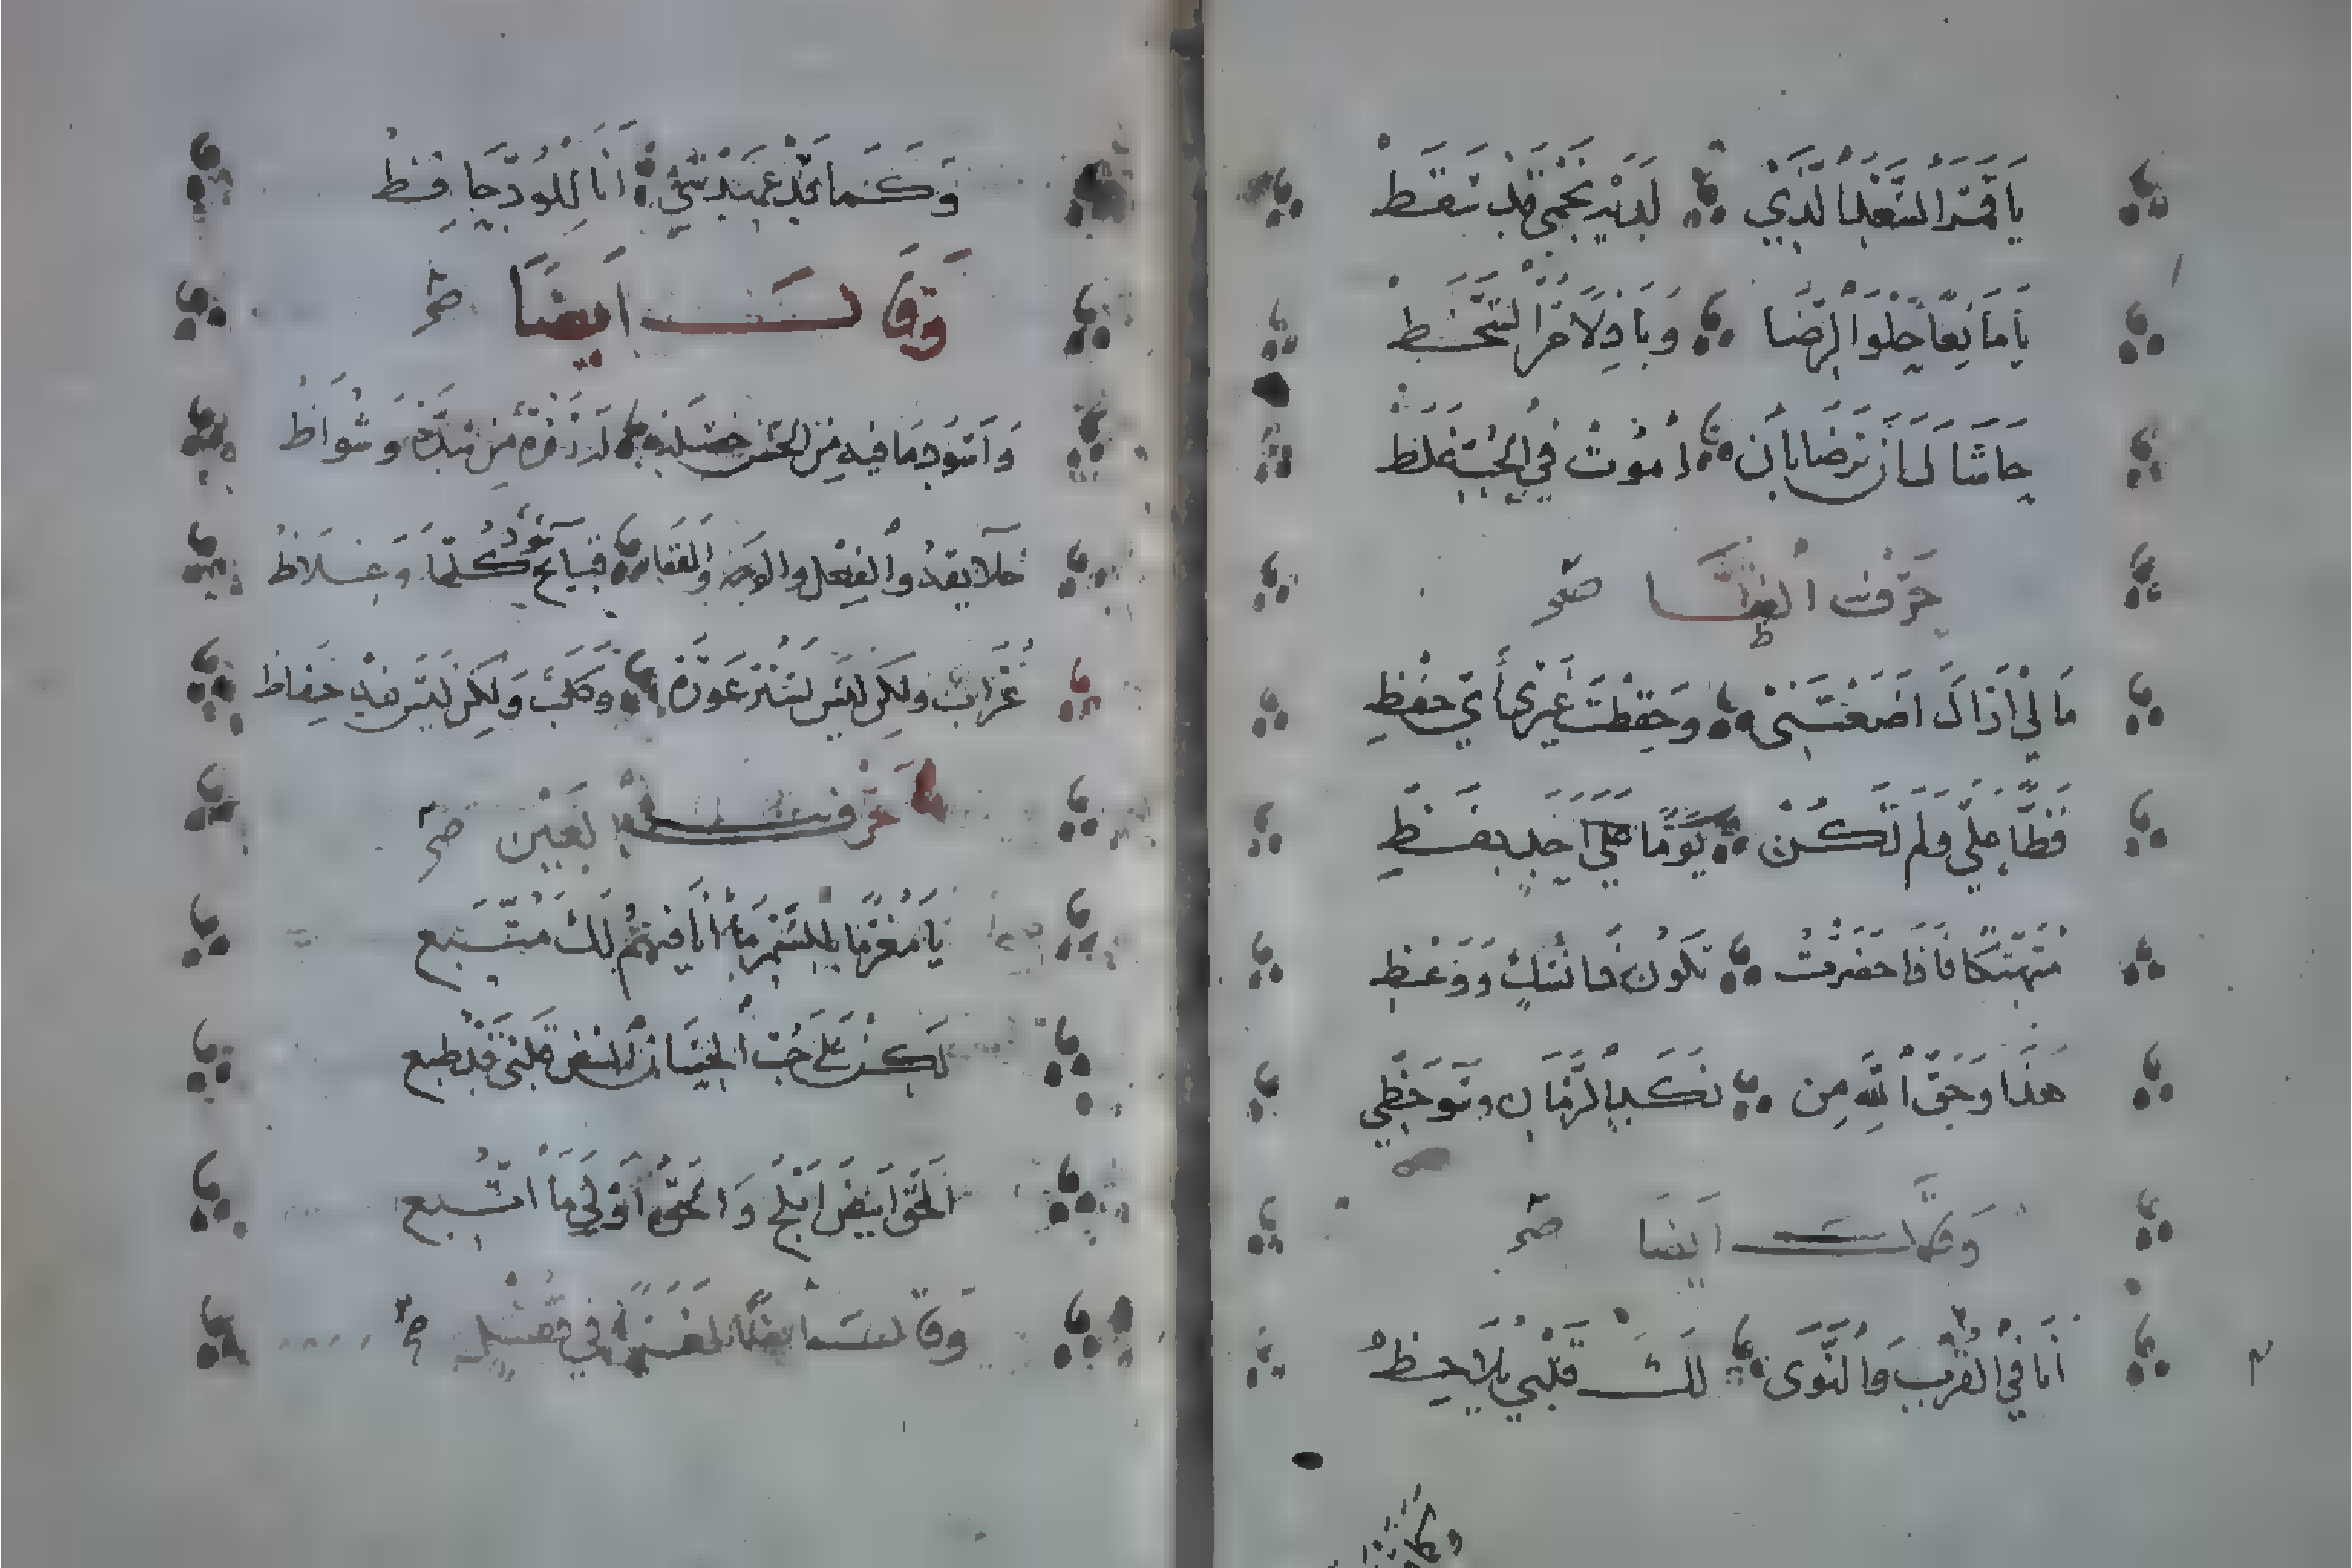 يَا قَمَرَ السَّعْدِ الَّذِي لَدَيْهِ نَجْمِي قَدْ سَقَطْ
يَا مَانِعًا حُلْوَ الرِّضَا وَبَاذِلًا مُرَّ السَّخَطْ
حَاشَاكَ أَنْ تَرْضَى بِأَنْ أَمُوتَ فِي الْحُبِّ غَلَطْ
حَرْفُ الظَّا صح
مَالِي أَرَاكَ أَضَعْتَنِي وَحَفِظْتَ غَيْرِي أَيَّ حِفْظِ
فَظًّا عَلَيَّ وَلَمْ تَكُنْ يَوْمًا عَلَى أَحَدٍ بِفَظِّ
مُتَهَتِّكًا فَإِذَا حَضَرْتُ تَكُونُ ذَا نُسُكٍ وَوَعْظِ
هَذَا وَحَقِّ اللَّهِ مِنْ نَكَدِ الزَّمَانِ وَسُوءِ حَظِّي
وَقَالَ أَيْضًا صح
أَنَا فِي الْقُرْبِ وَالنَّوَى لَكَ قَلْبِي مُلَاحِظُ
وكما
وَكَمَا قَدْ عَهِدْتَنِي أَنَا لِلْوُدِّ حَافِظُ
وَقَالَ أَيْضًا صح
وَأَسْوَد مَا فِيهِ مِنَ الْحُسْنِ خَصْلَةٌ لَهُ زَفْرَةٌ مِنْ شَرِّهِ وَشُوَاظُ
خَلَائِقُهُ وَالْفِعْلُ وَالْوَجْهُ وَالْقَفَا قَبَائِحُ سُودٌ كُلُّهَا وَغِلَاظُ
غُرَابٌ وَلَكِنْ لَيْسَ يَسْتُرُ عَوْرَةً وَكَلْبٌ وَلَكِنْ لَيْسَ فِيهِ حِفَاظُ
حَرْفُ الْعَيْنِ صح
يَا مُغْرَمًا بِالسُّمْرِ مَا أَنَا فِيهِمُ لَكَ مُتَّبِعْ
لَكِنْ عَلَى حُبِّ الْحِسَانِ الْبِيضِ قَلْبِي قَدْ طُبِعْ
الْحَقُّ أَبْيَضُ أَبْلَجُ وَالْحَقُّ أَوْلَى مَا اتُّبِعْ
وَقَالَ أَيْضًا فِي صح